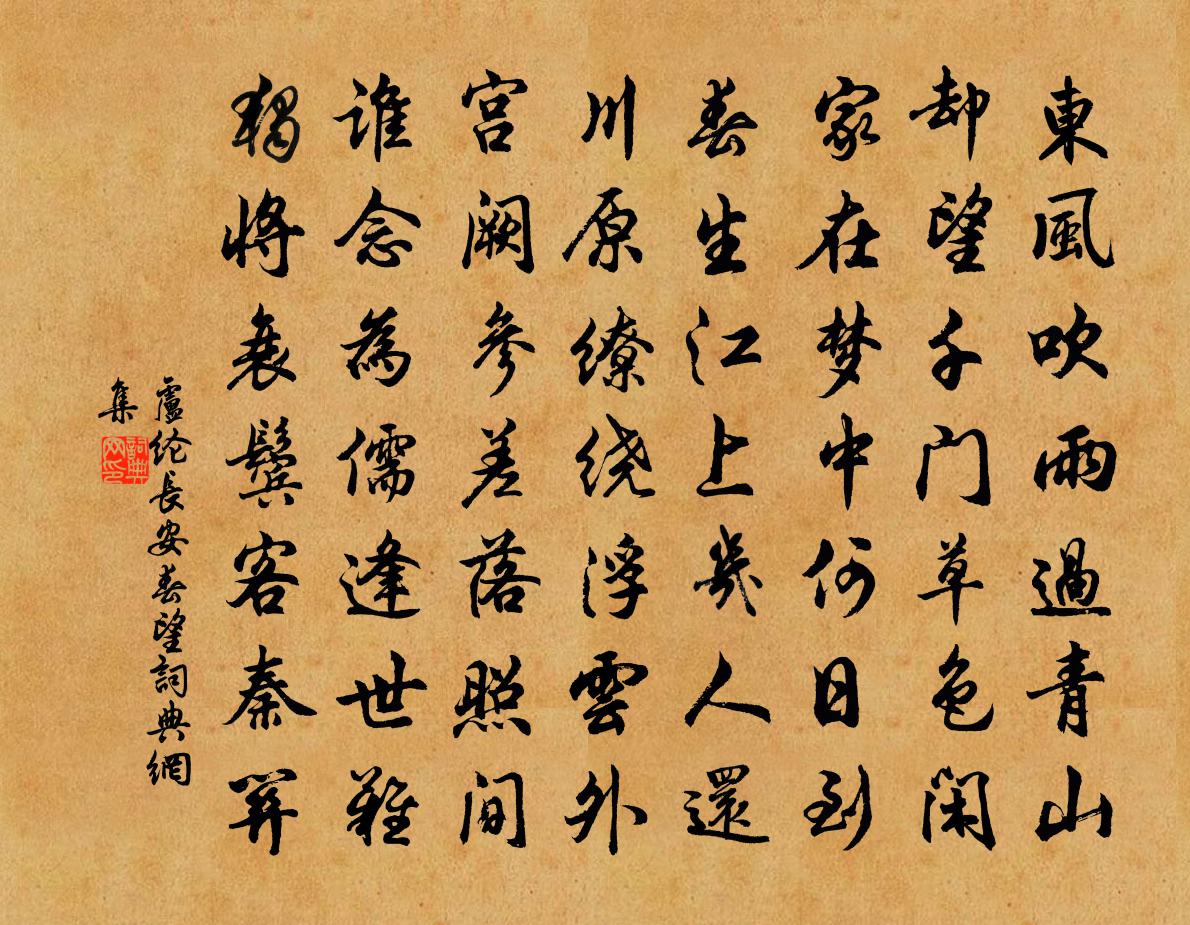 東風吹雨過青山
却望千门草色闲
家在梦中何日到
春生江上幾人還
川原缭绕浮雲外
宫阙參差落照间
谁念為儒逢世難
獨將衰鬢客秦關
盧纶長安春望詞典網
集
詞典网印